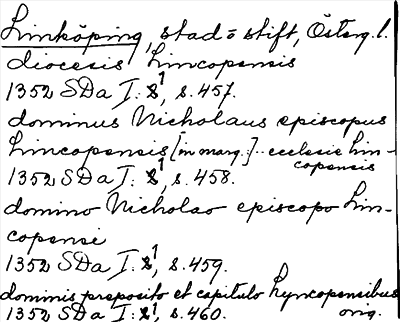 Linköping, stad o stift, Österg. l.
diocesis Lincopensis
1352 SDa I: 1, s. 457.
dominus Nicholaus episcopus
Lincopensis [in marg.] .. ecclesie Lin-
copensis
1352 SDa I: 1, s. 458.
domino Nicholao episcopo Lin-
copensi
1352 SDa I: 1, s. 459.
dominis preposito et capitulo Lyncopensibus
1352 SDa I: 1, s. 460. orig.